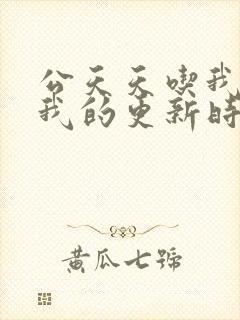 公天天喫我
我的更新時
黄瓜七號